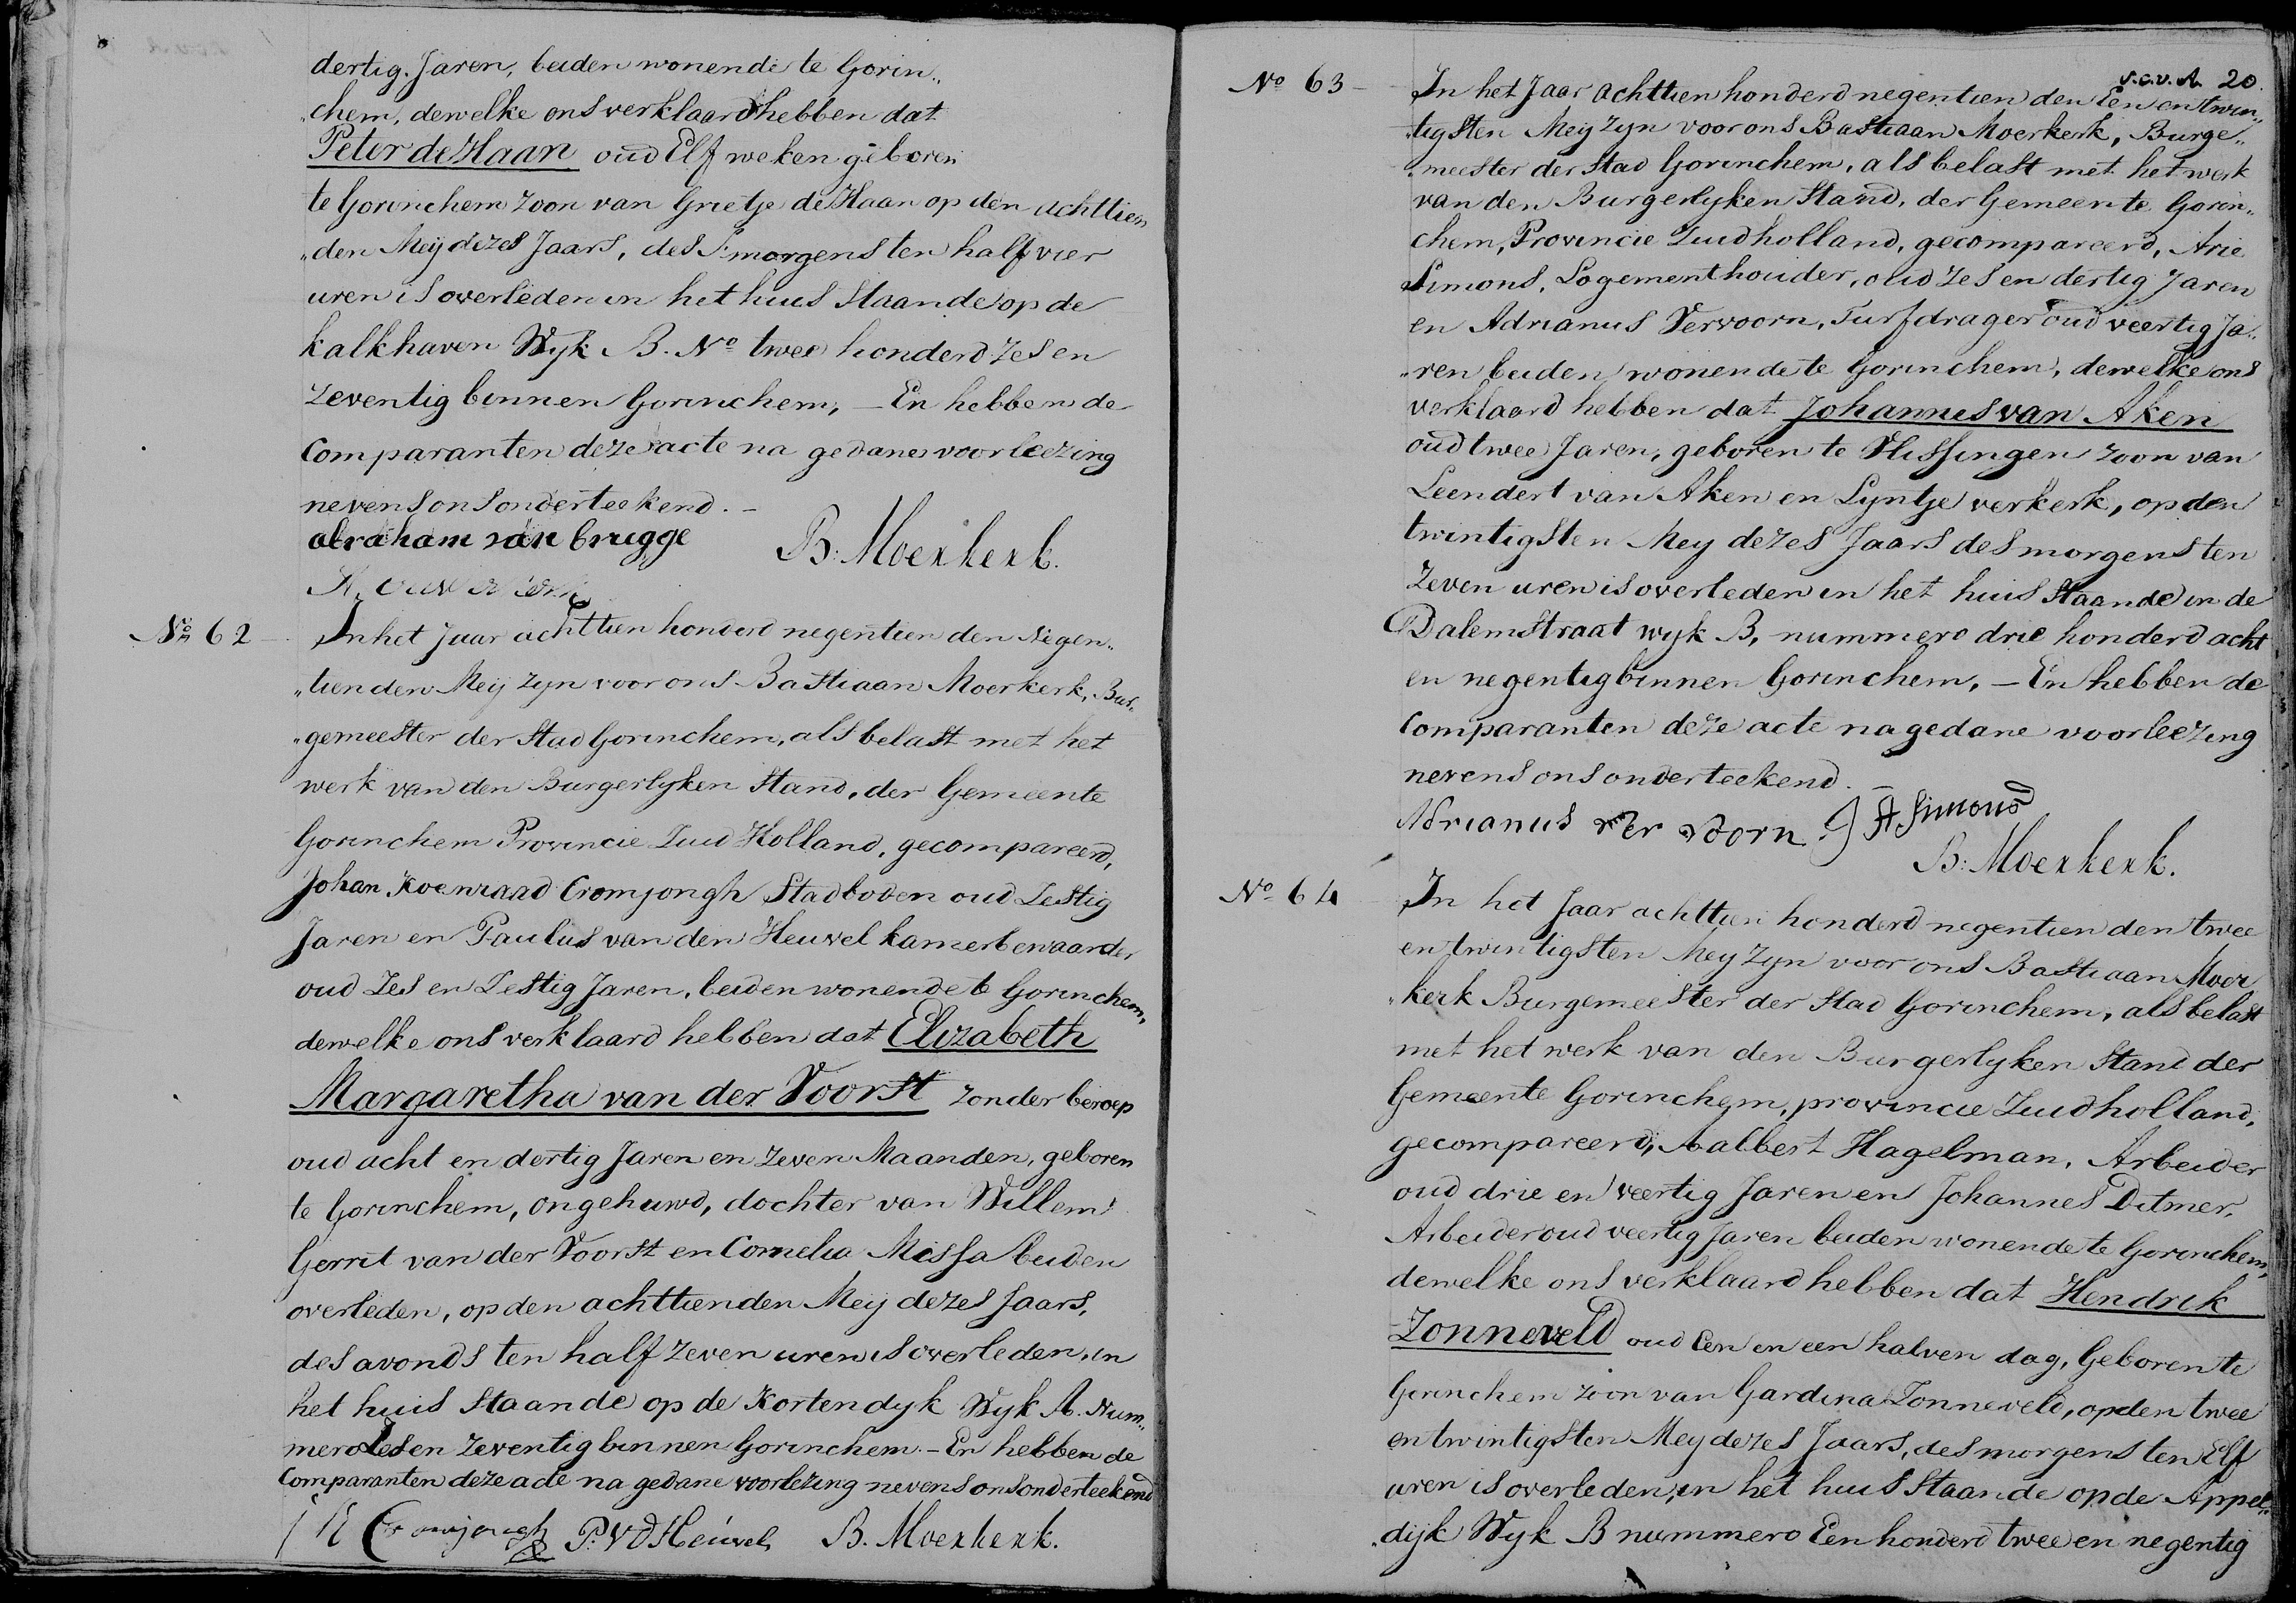 dertig Jaren, beiden wonende te Gorin„
„chem, dewelke ons verklaard hebben dat
Peter de Haan oud Elf weken geboren
te Gorinchem zoon van Grietje de Haan op den achttien
„den Meij dezes Jaars, des S'morgens ten half vier
uren is overleden in het huis staande op de
kalkhaven Wyk B. No twee honderd zes en
zeventig binnen Gorinchem, – En hebben de
Comparanten deze acte na gedane voorleezing
nevens ons onderteekend. –
abraham van brugge B: Moerkerk.
No 62 – In het Jaar achttien honderd negentien den Negen„
„tienden Meij zyn voor ons Bastiaan Moerkerk, Bur„
„gemeester der Stad Gorinchem, als belast met het
werk van den Burgerlyken Stand, der Gemeente
Gorinchem Provincie Zuid Holland, gecompareerd,
Johan Koenraad Cromjongh Stadboden oud Zestig
Jaren en Paulus van den Heuvel kamerbewaarder
oud Zes en Zestig Jaren, beiden wonende te Gorinchem,
dewelke ons verklaard hebben dat Elizabeth
Margaretha van der Voorst zonder beroep
oud acht en dertig Jaren en zeven Maanden, geboren
te Gorinchem, ongehuwd, dochter van Willem
Gerrit van der Voorst en Cornelia Missa beiden
overleden, op den achttienden Meij dezes Jaars,
des avonds ten half zeven uren is overleden, in
het huis staande op de Kortendyk Wyk A. Num„
mero Zes en zeventig binnen Gorinchem. – En hebben de
Comparanten deze acte na gedane voorlezing nevens ons onderteekend
J K Cromjongh P. VD Heuvel, B. Moerkerk.
s.c.v.A. 20.
No 63 – In het Jaar achttien honderd negentien den Een en twin„
„tigsten Meij zyn voor ons Bastiaan Moerkerk, Burge„
„meester der Stad Gorinchem, als belast met het werk
van den Burgerlyken Stand, der Gemeente Gorin„
chem, Provincie Zuidholland, gecompareerd, Arie
Simons, Logementhouder, oud zes en dertig Jaren
en Adrianus Vervoorn, Turfdrager oud veertig Ja„
„ren beiden wonende te Gorinchem, dewelke ons
verklaard hebben dat Johannis van Aken
oud twee Jaren, geboren te Vlissingen zoon van
Leendert van Aken en Lyntje verkerk, op den
twintigsten Mey dezes Jaars des morgens ten
zeven uren is overleden in het huis staande in de
Dalemstraat wyk B, nummero drie honderd acht
en negentig binnen Gorinchem, – En hebben de
Comparanten deze acte na gedane voorleezing
nevens ons onderteekend. –
Adrianus ver voorn A Simons
B: Moerkerk.
No 64 In het Jaar achttien honderd negentien den twee
en twintigsten Meij zyn voor ons Bastiaan Moer
„kerk Burgemeester der Stad Gorinchem, als belast
met het werk van den Burgerlyken Stand der
Gemeente Gorinchem, provincie Zuidholland,
gecompareerd, Aalbert Hagelman, Arbeider
oud drie en veertig Jaren en Johannes Ditmer,
Arbeider oud veertig Jaren beiden wonende te Gorinchem,
dewelke ons verklaard hebben dat Hendrik
Zonneveld oud Een en een halven dag, Geboren te
Gorinchem zoon van Gardina Zonneveld, op den twee
en twintigsten Mey dezes Jaars, des morgens ten Elf
uren is overleden, in het huis staande op de Appel„
„dijk Wyk B nummero Een honderd twee en negentig